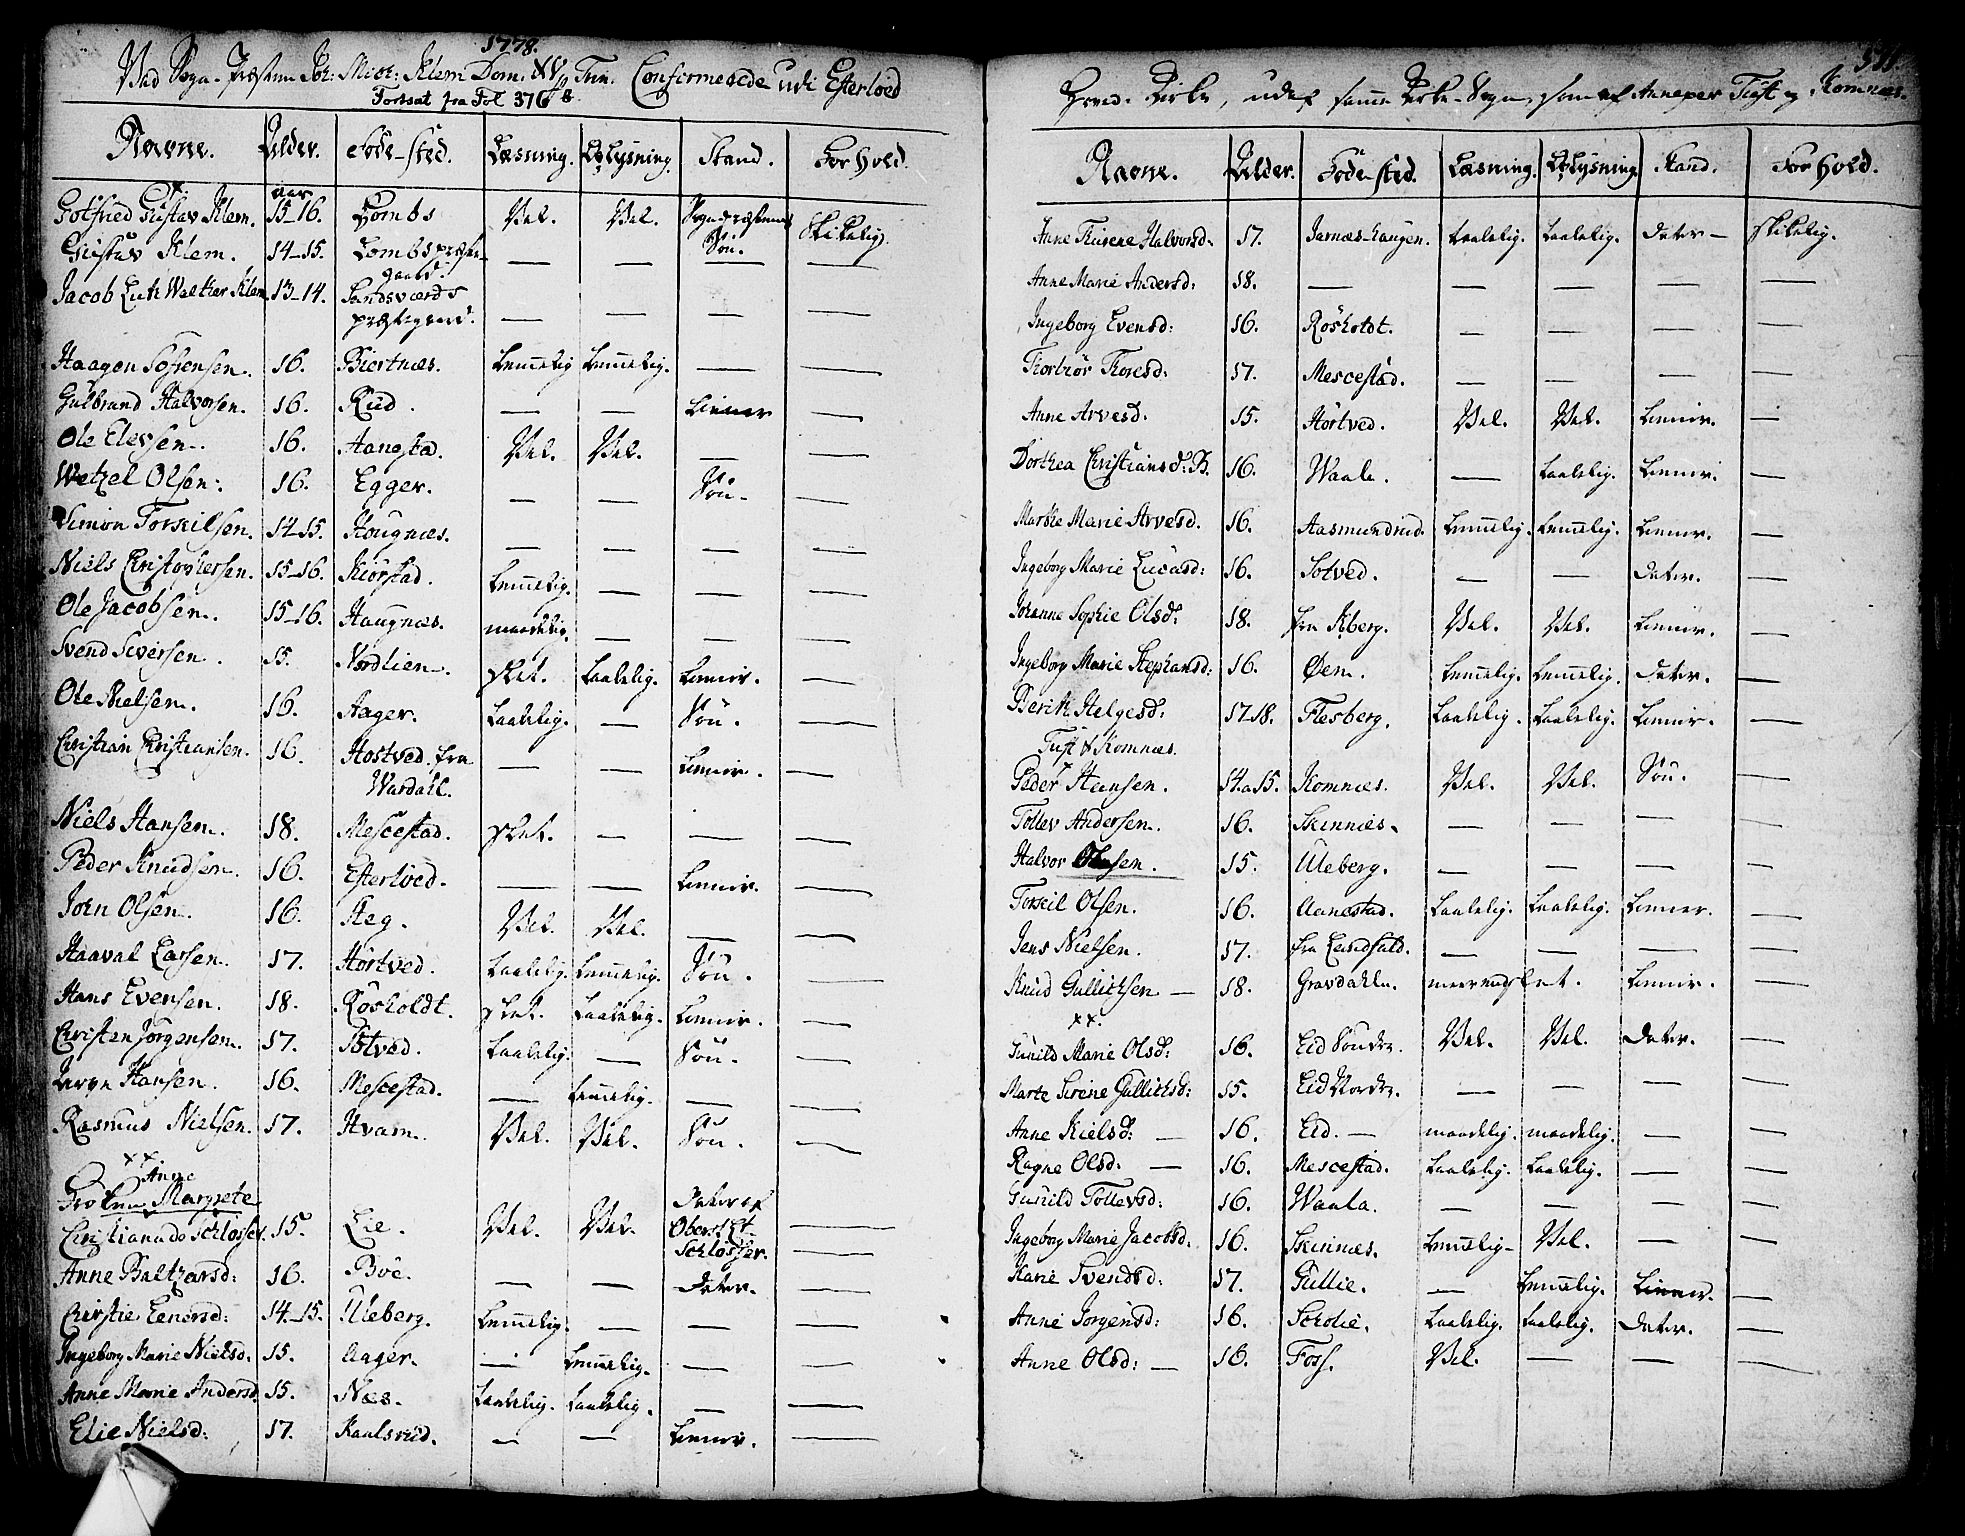 1778.
Ved Sogne-Præsten Joh: Mich: Klem Dom: XV p Trin. Confirmerede udi Efterlöed
Fortsat fra Fol 376 B
Navne. Alder. Föde-sted. Læsning. Oplysning. Stand. Forhold.
aar
Gotfried Gustav Klem. 15-16. Lombs Vel. Vel. Sognepræstens Søn. Skikelig.
Gustav Klem. 14-15. Lombs præste-gaard. — — — —
Jacob Luth Weltzer Klem 13-14. Sandsværds præstegaard. — — — —
Haagen Sörensen. 16. Biertnæs. Temmelig Temmelig. — —
Gulbrand Halvorsen. 16. Rud. — — —
Ole Elevsen. 16. Hangstad. Vel. Vel. — —
Wetzel Olsen. 16. Egger. — — Søn. —
Simon Torskilsen. 14-15. Hougnæs. — — — —
Niels Christophersen. 15-16. Kiörstad. Temmelig. — — —
Ole Jacobsen. 15-16. Haugnæs. maadelig. — — —
Svend Siversen. 15. Nordlien. slet. Taalelig. —
Ole Nielsen. 16. Aager. Taalelig. — Søn. —
Christian Christiansen. 16. Hostved fra Wardahl. — — —
Niels Hansen. 18. Mescestad. slet. — — —
Peder Knudsen. 16. Efterlöed. — — —
John Olsen. 16. Steg. Vel. Vel. — —
Haaval Larsen. 17. Hörtved. Taalelig. Temmelig. Søn. —
Hans Evensen. 18. Rösholdt. slet. Taalelig. —
Christen Jörgensen. 17. Sötved. Taalelig. — Søn. —
Hansen. 16. Mescestad. — Temmelig. — —
Rasmus Nielsen. 17. Hvam. Vel. Vel. Søn. —
xx.
Anne
Fröken Margrete
Christiana de Schlösser. 15. Eie. Vel. Vel. Dater af Oberst Lt. Schlösser. —
Anne Baltzarsd: 16. Böe. — — Dater. —
Cirstie Eenersd: 14-15. Uleberg. Temmelig. — — —
Ingeborg Marie Nielsd: 15. Aager. — Temmelig. — —
Anne Marie Andersd. 15. Næs. Taalelig. Taalelig. — —
Elie Nielsd: 17. Kaalsrud. — — —
Hoved-Kirke, udaf samme Kirke-Sogn, som af Annexer Tuft og Komnæs.
Navne. Alder. Föde-sted. Læsning. Oplysning. Stand. Forhold.
Anne Thurene Halvorsd. 17. Jarnæs-haugen. taalelig. taalelig. dater — skikelig.
Anne Marie Andersd: 18. — — — — —
Ingeborg Evensd: 16. Rösholdt. — — — —
Thorbiör Thoresd: 17. Mescestad. — — — —
Anne Arvesd. 15. Hörtved. Vel. Vel. —
Dorthea Christiansd: B. 16. Waale. — taalelig. —
Marthe Marie Arvesd. 16. Aasmundrud. Temmelig. Temmelig. —
Ingeborg Marie Lucasd: 16. Sotved. — — Dater. —
Johanne Sophie Olsd: 18. fra Kberg. Vel. Vel. —
Ingeborg Marie Stephansd: 16. Öen. Temmelig. Temmelig. Dater. —
Berith Helgesd: 17.18. Flesberg. Taalelig. Taalelig. —
Tuft & Komnæs.
Peder Hansen. 14 a 15. Komnæs. Vel. Vel. Søn. —
Tollev Andersen. 16. Skinnæs. — — — —
Halvor Olsen. 15. Uleberg. — — — —
Torskil Olsen. 16. Aanestad. Taalelig. Taalelig. —
Jens Nielsen. 17. fra Lundfald. — — — —
Knud Gullichsen — 18. Gravdahle. meere nd slet. —
xx.
Gunild Marie Olsd: 16. Eid Søndre. Vel. Vel. Dater. —
Marte Sirene Gullichsd: 15. Eid Nordre. — — — —
Anne Kielsd: — 16. Eid. — maadelig. maadelig. — —
Ragne Olsd: — 16. Mescestad. Taalelig. Taalelig. — —
Gunild Tollevsd: 16. Waala. — — — —
Ingeborg Marie Jacobsd: 16. Skinnæs. Temmelig — Vel. — —
Marie Svendsd: 17. Gullie. — Temmelig. —
Anne Jorgensd: 16. Scholie. Taalelig. Taalelig. Dater. —
Anne Olsd: — 16. Foss. Vel. — — —